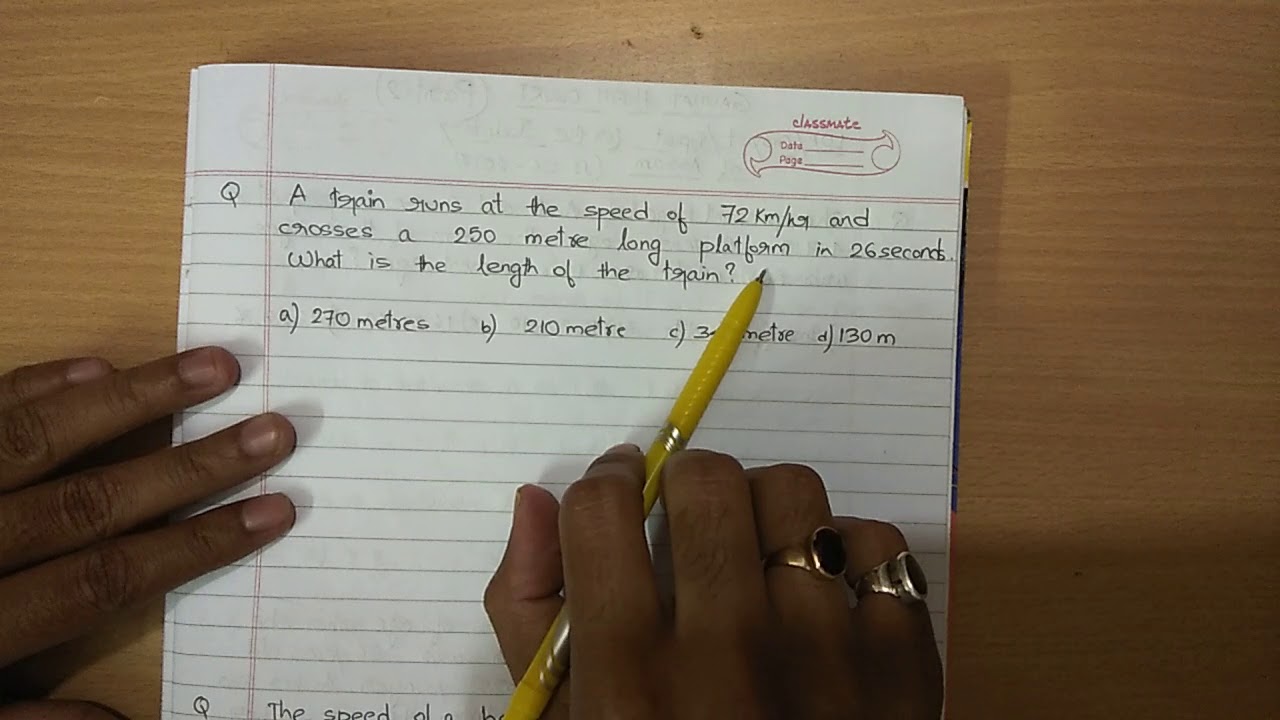 classmate
Date
Page
Q A train runs at the speed of 72 Km/hr and
crosses a 250 metre long platform in 26 seconds.
What is the length of the train?
a) 270 metres b) 210 metre c) metre d) 130 m
Q The speed of a